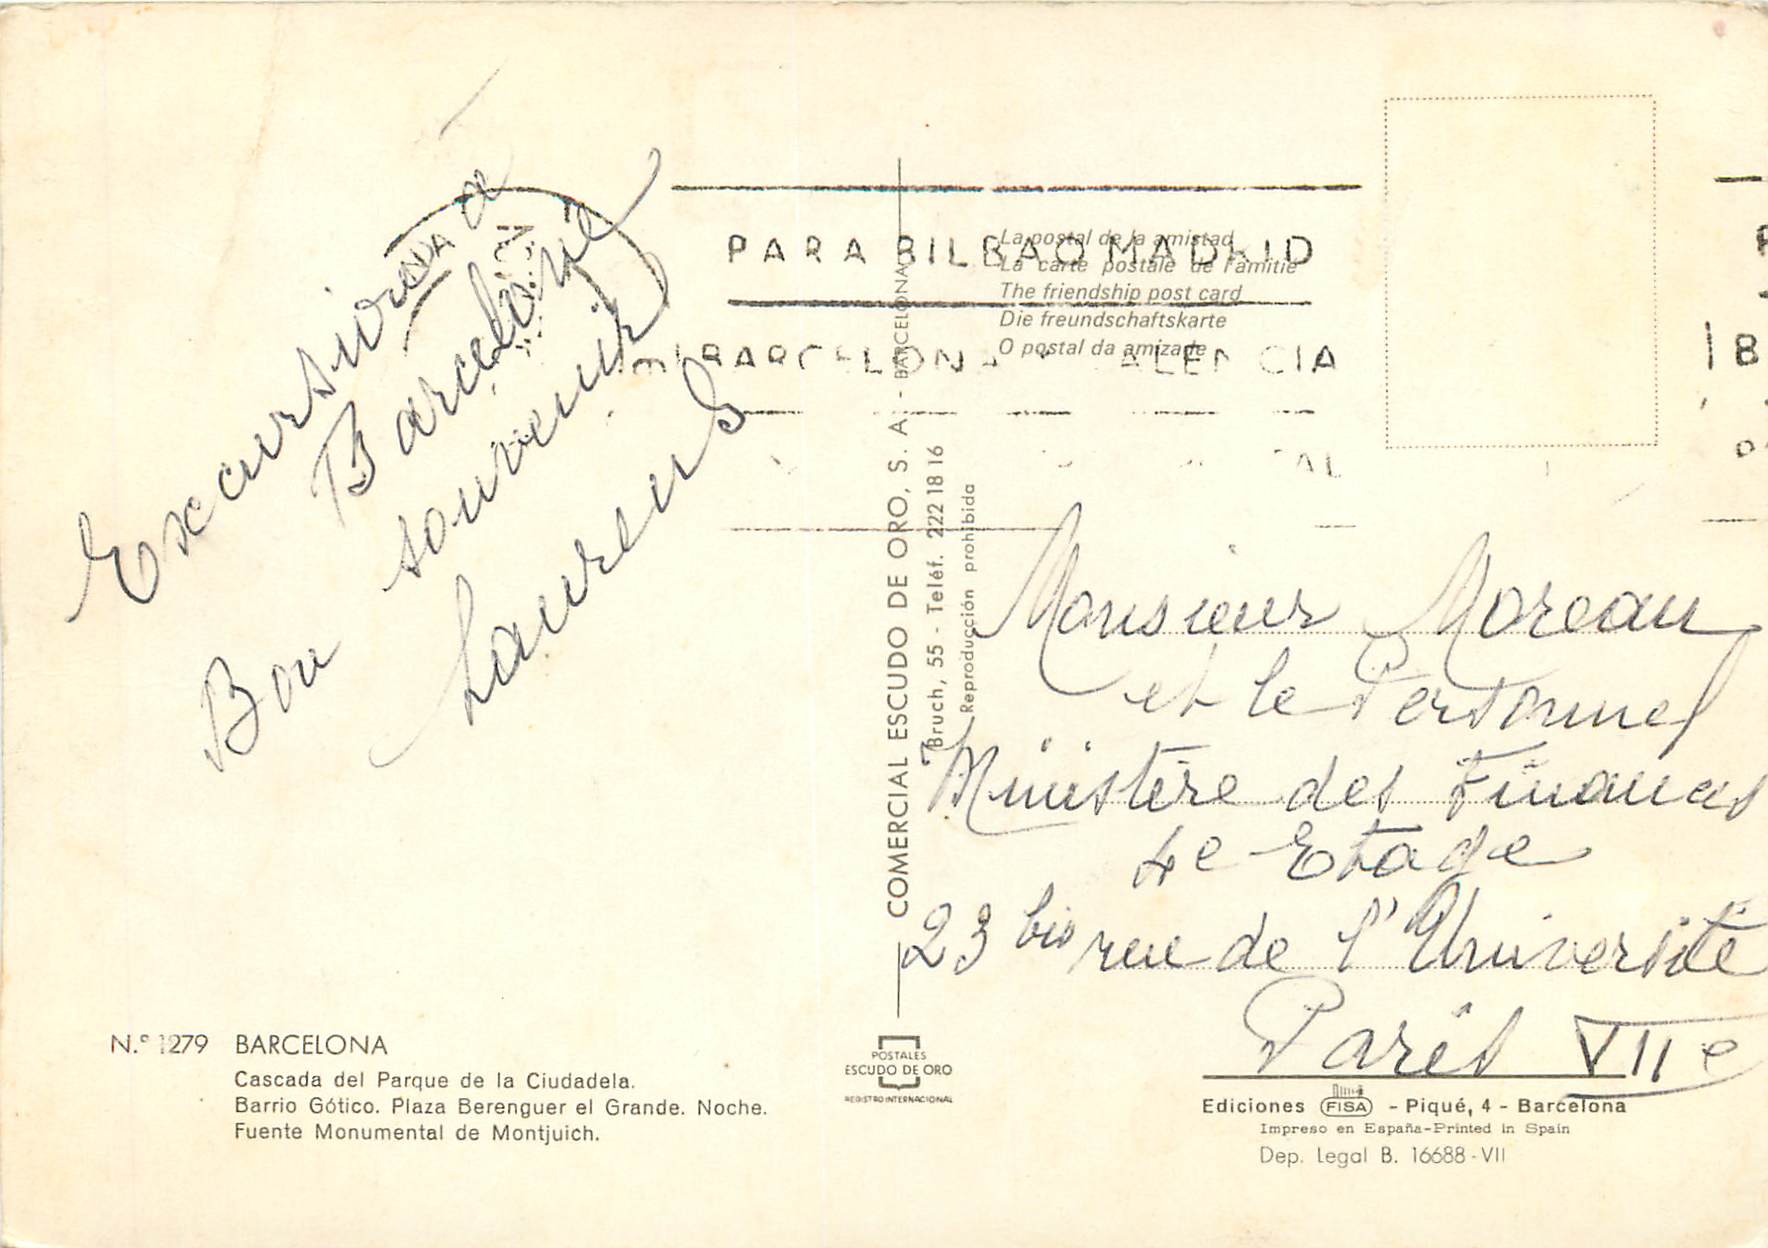 Excursion à
Barcelone
Bon souvenir
Laurens
PARA BILBAO MADRID
BARCELONA VALENCIA
La postal de la amistad
La carte postale de l'amitié
The friendship post card
Die freundschaftskarte
O postal da amizade
COMERCIAL ESCUDO DE ORO, S. A. - BARCELONA
Bruch, 55 - Teléf. 222 18 16
Reproducción prohibida
Monsieur Moreau
et le Personnel
Ministère des Finances
4e Etage
23 bis rue de l'Université
Paris VIIe
N.º 1279 BARCELONA
Cascada del Parque de la Ciudadela.
Barrio Gótico. Plaza Berenguer el Grande. Noche.
Fuente Monumental de Montjuich.
POSTALES
ESCUDO DE ORO
REGISTRO INTERNACIONAL
Ediciones FISA - Piqué, 4 - Barcelona
Impreso en España-Printed in Spain
Dep. Legal B. 16688-VII